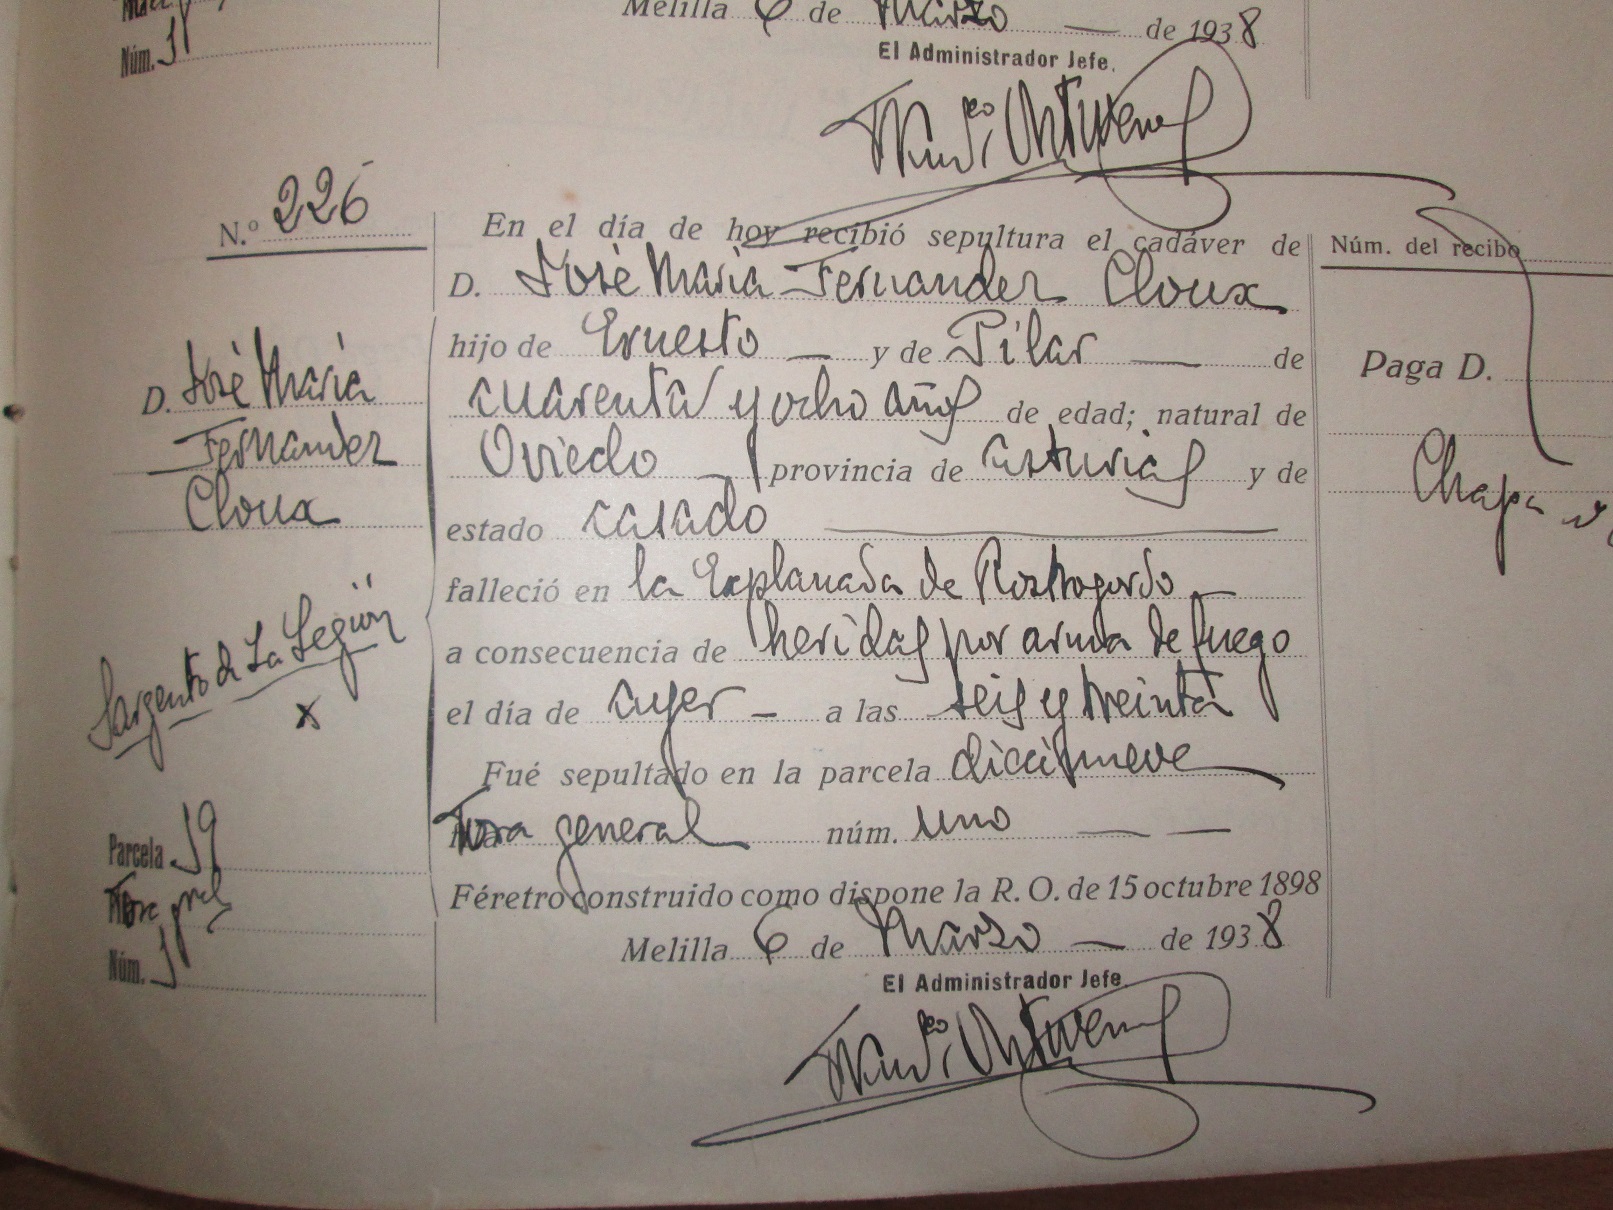 Núm. 1
Melilla 6 de Marzo de 1938
El Administrador Jefe.
N.º 226
En el día de hoy recibió sepultura el cadáver de
D. José Maria Fernandez Cloux
hijo de Ernesto y de Pilar de
cuarenta y ocho años de edad; natural de
Oviedo provincia de Asturias y de
estado casado
falleció en la Explanada de Rostrogordo
a consecuencia de heridas por arma de fuego
el día de ayer a las seis y treinta
Fué sepultado en la parcela diecinueve
Fosa general núm. uno
Féretro construido como dispone la R. O. de 15 octubre 1898
Melilla 6 de Marzo de 1938
El Administrador Jefe.
D. José Maria
Fernandez
Cloux
Sargento de La Legión
x
Parcela 19
Fosa gral
Núm. 1
Núm. del recibo
Paga D.
Chapa